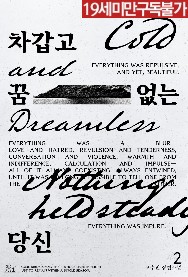 19세미만구독불가
차갑고
Cold
EVERYTHING WAS REPULSIVE,
AND YET, BEAUTIFUL.
and
꿈
없는
Dreamless
EVERYTHING WAS A BLUR.
LOVE AND HATRED, REVULSION AND TENDERNESS,
CONVERSATION AND VIOLENCE, WARMTH AND
INDIFFERENCE, CALCULATION AND IMPULSE—
ALL OF IT ALWAYS COEXISTING, ALWAYS ENTWINED,
UNTIL IT WAS IMPOSSIBLE TO TELL ONE FROM
Nothing
held steady
EVERYTHING WAS IMPURE.
당신
2